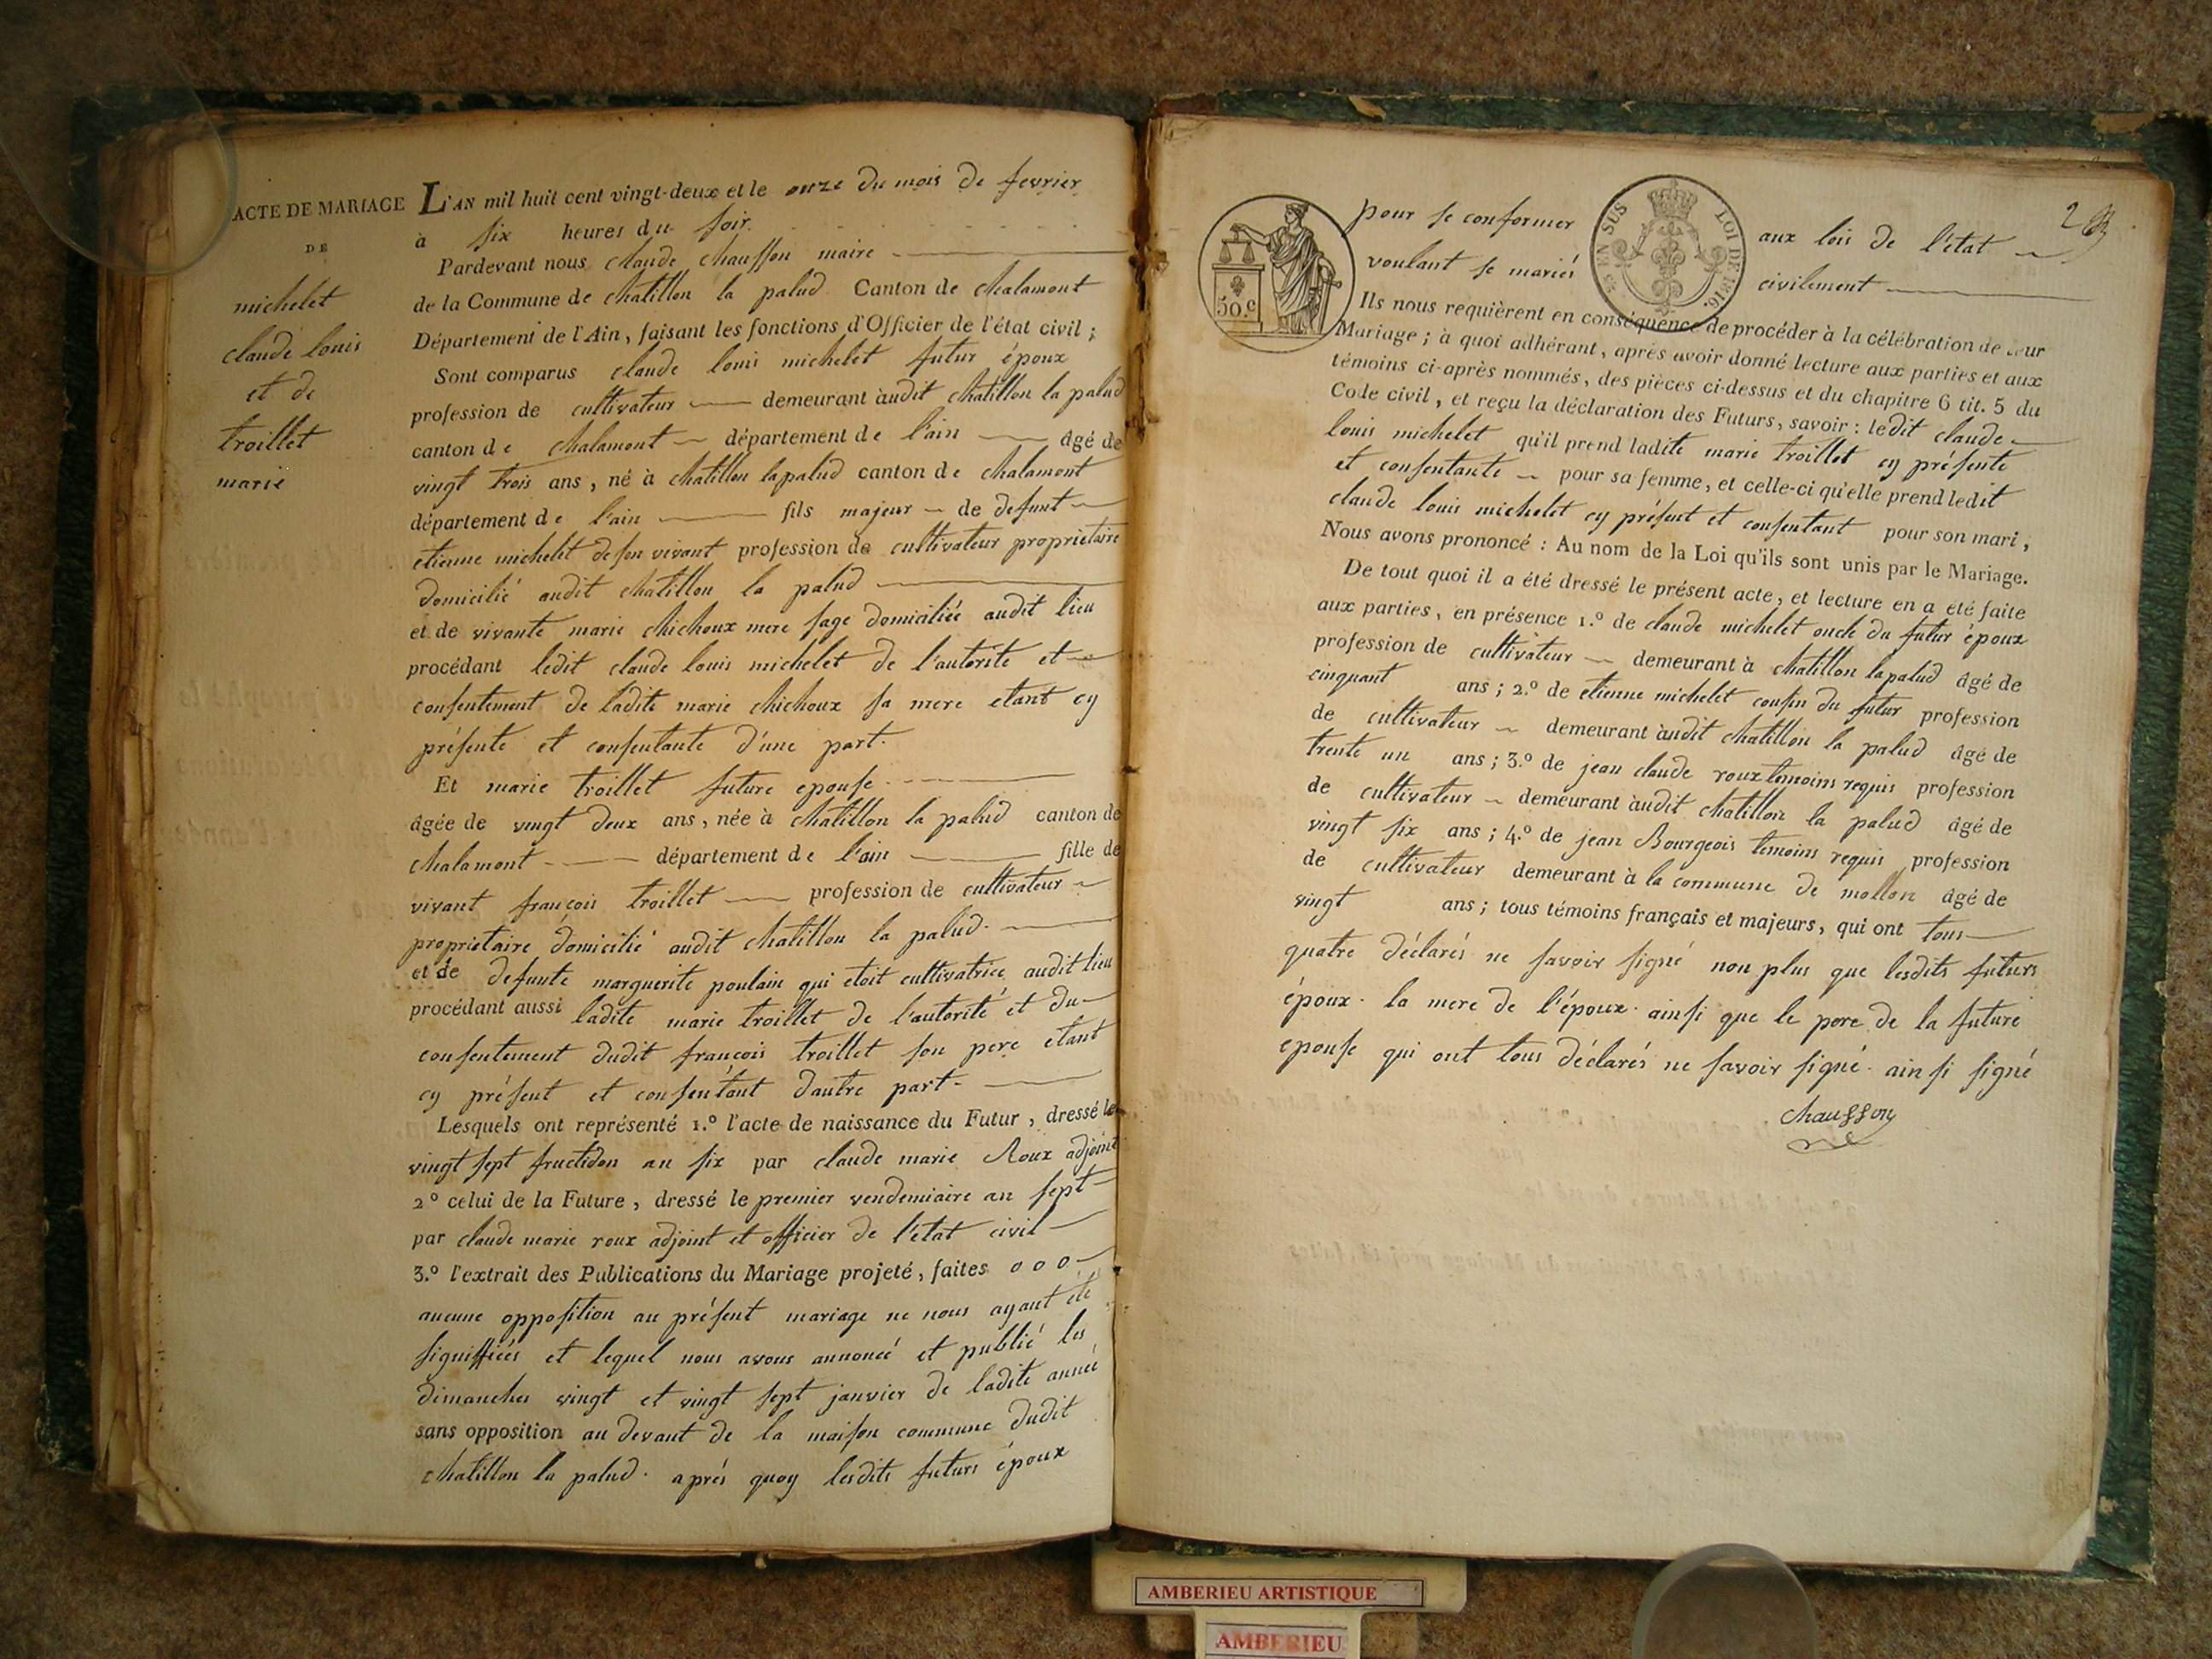 ACTE DE MARIAGE
DE
michelet
claude louis
et de
troillet
marie
L'AN mil huit cent vingt-deux et le onze du mois de fevrier
à six heures du soir
Pardevant nous claude chausson maire
de la Commune de chatillon la palud Canton de chalamont
Département de l'Ain, faisant les fonctions d'Officier de l'état civil ;
Sont comparus claude louis michelet futur époux
profession de cultivateur demeurant àudit chatillon la palud
canton de chalamont département de l'ain âgé de
vingt trois ans, né à chatillon lapalud canton de chalamont
département de l'ain fils majeur de defunt
etienne michelet de son vivant profession de cultivateur proprietaire
domicilié audit chatillon la palud
et de vivante marie chichoux mere sage domiciliée audit lieu
procédant ledit claude louis michelet de l'autorité et
consentement de ladite marie chichoux sa mere etant cy
présente et consentante d'une part.
Et marie troillet future epouse
âgée de vingt deux ans, née à chatillon la palud canton de
chalamont département de l'ain fille de
vivant françois troillet profession de cultivateur
proprietaire domicilié audit chatillon la palud.
et de defunte marguerite poulain qui etoit cultivatrice audit lieu
procédant aussi ladite marie troillet de l'autorité et du
consentement dudit françois troillet son pere etant
cy présent et consentant dautre part.
Lesquels ont représenté 1.º l'acte de naissance du Futur, dressé le
vingt sept fructidor an six par claude marie Roux adjoint
2º celui de la Future, dressé le premier vendemiaire an sept
par claude marie roux adjoint et officier de l'état civil
3.º l'extrait des Publications du Mariage projeté, faites o o o
aucune opposition au présent mariage ne nous ayant été
signiffiées et lequel nous avons annoncé et publié les
dimanches vingt et vingt sept janvier de ladite année
sans opposition au devant de la maison commune dudit
chatillon la palud. après quoy lesdits futurs époux
EN SUS
LOI DE 1816.
50.c
pour se conformer aux lois de l'état
voulant se mariés civilement
Ils nous requièrent en conséquence de procéder à la célébration de leur
Mariage ; à quoi adhérant, après avoir donné lecture aux parties et aux
témoins ci-après nommés, des pièces ci-dessus et du chapitre 6 tit. 5 du
Code civil, et reçu la déclaration des Futurs, savoir : ledit claude
louis michelet qu'il prend ladite marie troillet cy présente
et consentante pour sa femme, et celle-ci qu'elle prend ledit
claude louis michelet cy présent et consentant pour son mari,
Nous avons prononcé : Au nom de la Loi qu'ils sont unis par le Mariage.
De tout quoi il a été dressé le présent acte, et lecture en a été faite
aux parties, en présence 1.º de claude michelet oncle du futur époux
profession de cultivateur demeurant à chatillon lapalud âgé de
cinquant ans ; 2.º de etienne michelet cousin du futur profession
de cultivateur demeurant àudit chatillon la palud âgé de
trente un ans ; 3.º de jean claude roux temoins requis profession
de cultivateur demeurant àudit chatillon la palud âgé de
vingt six ans ; 4.º de jean Bourgeois temoins requis profession
de cultivateur demeurant à la commune de mollon âgé de
vingt ans ; tous témoins français et majeurs, qui ont tous
quatre déclarés ne savoir signé non plus que lesdits futurs
époux. la mere de l'époux. ainsi que le pere de la future
epouse qui ont tous déclarés ne savoir signé. ainsi signé
chausson
AMBERIEU ARTISTIQUE
AMBERIEU